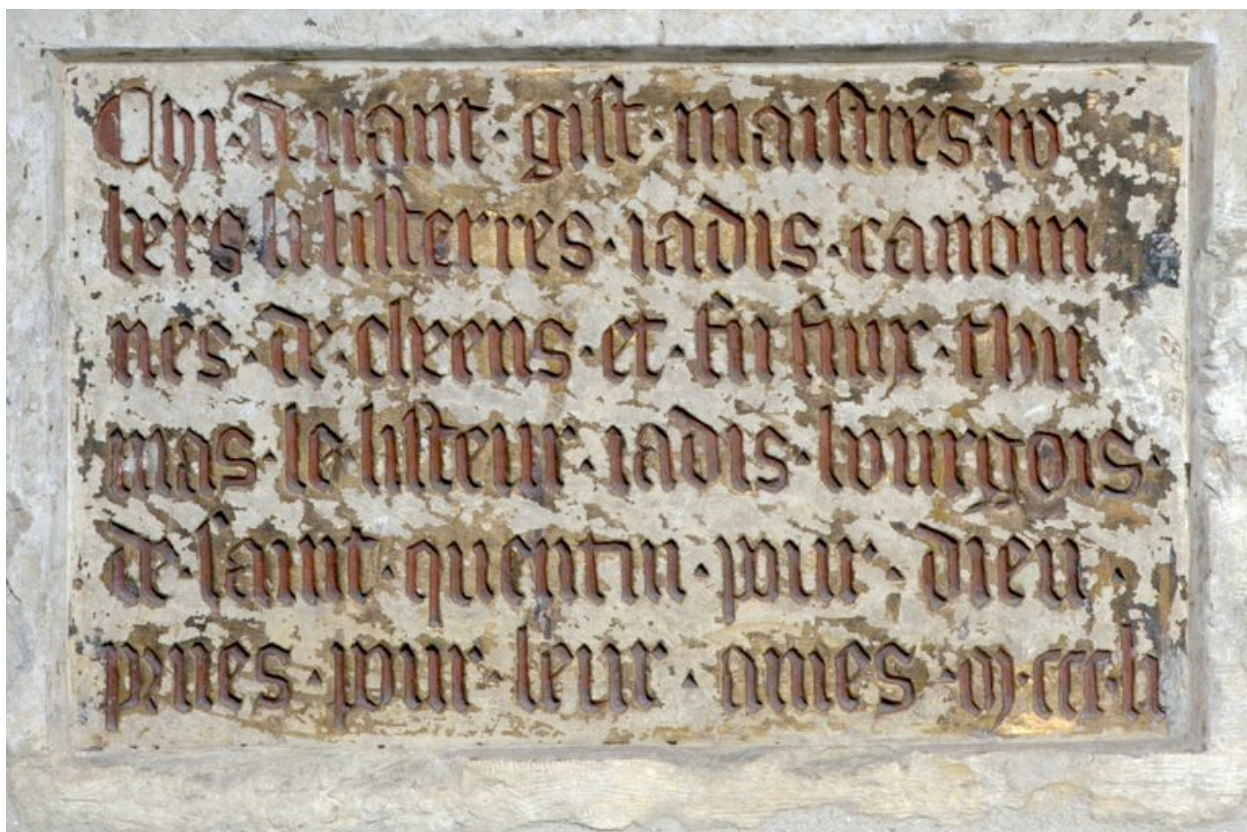 Chi · deuant · gist · maistres · ro
bers · li listerres · iadis · canoin
nes · de · cheens · et · fu fiux · thu
mas · le · listeur · iadis · bourgois ·
de · saint · quentin · pour · dieu ·
priies · pour · leur · ames · m · ccc · li